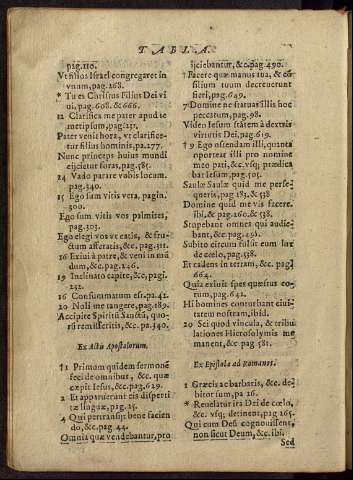 TABLA.
pag.110.
Vt filios Israel congregaret in
vnum, pag.268.
* Tu es Christus Filius Dei vi
vi, pag. 608. & 666.
12 Clarifica me pater apud te
metipsum, pag.231.
Pater venit hora, vt clarifice-
tur filius hominis, pa.277.
Nunc princeps huius mundi
eijcietur foras, pag.585.
14 Vado parare vobis locum.
pag.340.
15 Ego sum vitis vera, pagin.
300.
Ego sum vitis vos palmites,
pag.303.
Ego elegi vos vt eatis, & fru-
ctum afferatis, &c. pag.311.
16 Exiui à patre, & veni in mū
dum, &c. pag.246.
19 Inclinato capite, &c. pagi.
232.
16 Consumatum est. pa.41.
20 Noli me tangere, pag.189.
Accipite Spiritū Sanctū, quo-
rū remisseritis, &c. pa.340.
Ex Actis Apostolorum.
†1 Primum quidem sermonē
feci de omnibus, &c. quæ
cœpit Iesus, &c. pag.629.
2 Et apparuerunt eis disperti
tæ linguæ, pag.15.
4 Qui pertransijt bene facien
do, &c. pag.44.
Omnia quæ vendebantur, pro
ijciebantur, &c. pag.490.
† Facere quæ manus tua, & cō
silium tuum decreuerunt
fieri, pag.649.
7 Domine ne statuas illis hoc
peccatum, pag.98.
Video Iesum stātem à dextris
virtutis Dei, pag.619.
† 9 Ego ostendam illi, quanta
oporteat illi pro nomine
meo pati, &c. vsq; prædica
bat Iesum, pag.
Saule Saule quid me perse-
queris, pag.183. & 538
Domine quid me vis facere.
ibi. & pag.260. & 538.
Stupebant omnes qui audie-
bant, &c. pag.491.
Subito circum fulsit eum lux
de cœlo, pag.538.
Et cadens in terram, &c. pag.
664.
Quia exiuit spes quæstus eo-
rum, pag.642.
Hi homines conturbant ciui-
tatem nostram, ibid.
20 Sei quod vincula, & tribu
lationes Hierosolymis me
manent, &c pag. 581.
Ex Epistola ad Romanos.
1 Græcis ac barbaris, &c. de-
bitor sum, pa 26.
* Reuelatur ira Dei de cœlo,
& c. vsq; detinent, pag 265.
Qui cum Deū cognouissent,
non sicut Deum, &c. ibi.
Sed